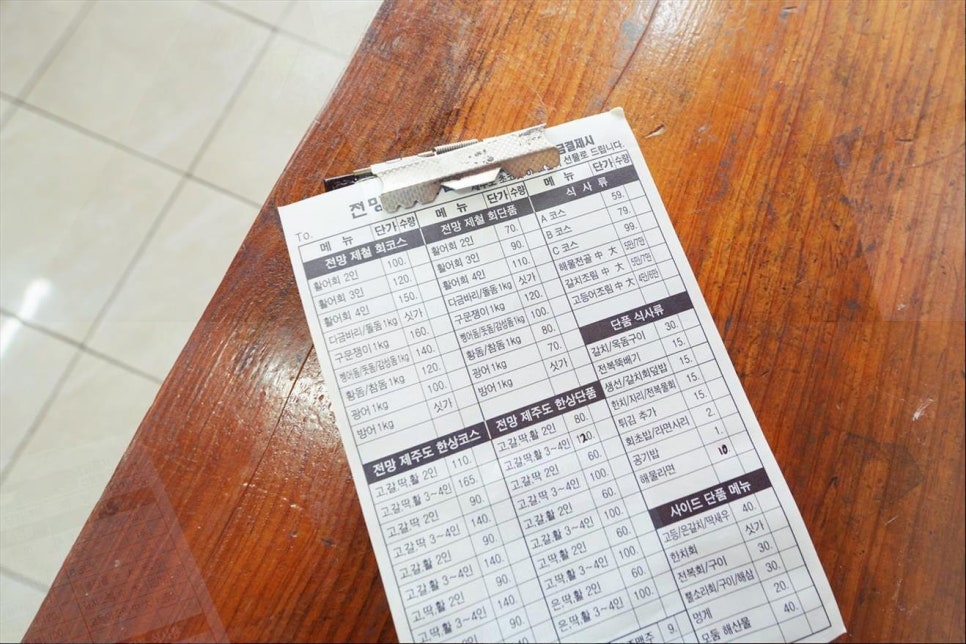 금결제시
선물로 드립니다.
전망
To.
메 뉴 단가 수량
전망 제철 회코스
활어회 2인 100.
활어회 3인 120.
활어회 4인 150.
다금바리/돌돔1kg 싯가
구문쟁이1kg 160.
벵어돔/돗돔/감성돔1kg 140.
황돔/참돔1kg 120.
광어1kg 100.
방어1kg 싯가
전망 제주도 한상코스
고.갈.딱.활 2인 110.
고.갈.딱.활 3~4인 165.
고.갈.딱 2인 90.
고.갈.딱 3~4인 140.
고.갈.활 2인 90.
고.갈.활 3~4인 140.
고.딱.활 2인 90.
고.딱.활 3~4인 140.
메 뉴 단가 수량
전망 제철 회단품
활어회 2인 70.
활어회 3인 90.
활어회 4인 110.
다금바리/돌돔1kg 싯가
구문쟁이1kg 120.
벵어돔/돗돔/감성돔1kg 100.
황돔/참돔1kg 80.
광어1kg 70.
방어1kg 싯가
전망 제주도 한상단품
고.갈.딱.활 2인 80.
고.갈.딱.활 3~4인 120.
고.갈.딱 2인 60.
고.갈.딱 3~4인 100.
고.갈.활 2인 60.
고.갈.활 3~4인 100.
고.딱.활 2인 60.
고.딱.활 3~4인 100.
은.딱.활 2인 60.
은.딱.활 3~4인 100.
9.
메 뉴 단가 수량
식 사 류
A 코스 59.
B 코스 79.
C 코스 99.
해물전골 中 大 5만/7만
갈치조림 中 大 5만/7만
고등어조림 中 大 4만/6만
단품 식사류
갈치/옥돔구이 30.
전복뚝배기 15.
생선/갈치회덮밥 15.
한치/자리/전복물회 15.
튀김 추가 15.
회초밥/라면사리 2.
공기밥 1.
해물라면 10
사이드 단품 메뉴
고등/은갈치/딱새우 40.
한치회 싯가
전복회/구이 30.
뿔소라회/구이/해삼 30.
멍게 20.
모둠 해산물 40.